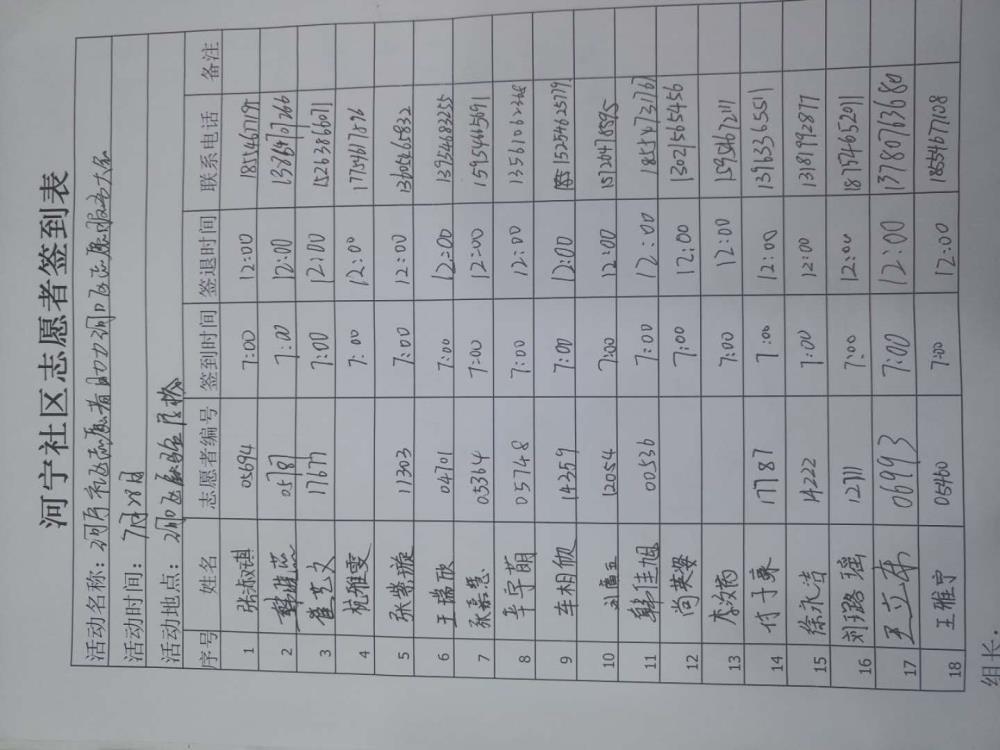 河宁社区志愿者签到表
活动名称：河宁社区志愿者助力河口区志愿服务大会
活动时间：7月28日
活动地点：河口区实验学校
序号 姓名 志愿者编号 签到时间 签退时间 联系电话 备注
1 张淑琪 05694 7:00 12:00
2 韩 05787 7:00 12:00 13864707266
3 崔艺文 17677 7:00 12:00 15263866071
4 杭雅雯 7:00 12:00 17754617876
5 张紫璇 11303 7:00 12:00 13605465832
6 王瑞欣 04701 7:00 12:00 13954683255
7 张嘉慧 05364 7:00 12:00 15954665691
8 车宇萌 05748 7:00 12:00 13561062368
9 车相欣 14359 7:00 12:00 15254625779
10 12054 7:00 12:00 15720478595
11 韩佳旭 00536 7:00 12:00 18554731767
12 尚英姿 7:00 12:00 13021565456
13 李汶芮 7:00 12:00 15954672111
14 付于秉 17787 7:00 12:00 13963365551
15 徐永浩 14222 7:00 12:00 13181992877
16 刘璐瑶 12711 7:00 12:00 18754652011
17 王立东 06993 7:00 12:00 13780713680
18 王雅宁 05460 7:00 12:00 18554677108
组长：